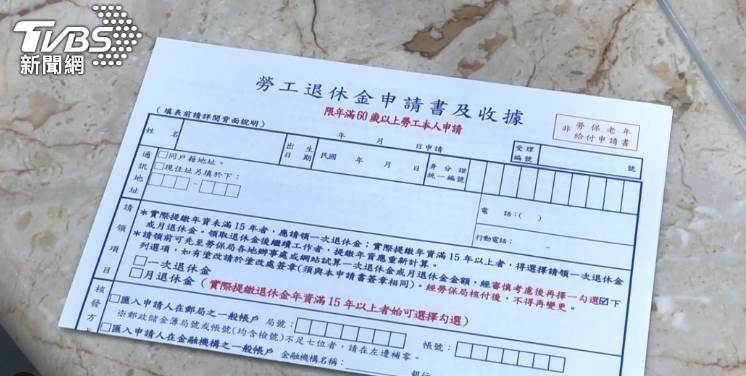 TVBS
新聞網
勞工退休金申請書及收據
限年滿60歲以上勞工本人申請
非勞保老年
給付申請書
(填表前請詳閱背面說明)
年 月 日申請
受理
編號
號
姓名
出生
日期
民國 年 月 日
身分證
統一編號
通訊地址
□同戶籍地址。
□現住址另填於下:
電 話:( )
行動電話:
請領項目
*實際提繳年資未滿15年者,應請領一次退休金;實際提繳年資滿15年以上者,得選擇請領一次退休金
或月退休金。領取退休金後繼續工作者,提繳年資應重新計算。
*請領前可先至勞保局各地辦事處或網站試算一次退休金或月退休金金額,經審慎考慮後再擇一勾選☑下
列選項,如有塗改請於塗改處簽章(須與本申請書簽章相同)。經勞保局核付後,不得再變更。
□一次退休金
□月退休金(實際提繳退休金年資滿15年以上者始可選擇勾選)
核發方
□匯入申請人在郵局之一般帳戶 局號: 帳號:
※郵政儲金簿局號或帳號(均含檢號)不足七位者,請在左邊補零。
□匯入申請人在金融機構之一般帳戶 金融機構名稱: 銀行